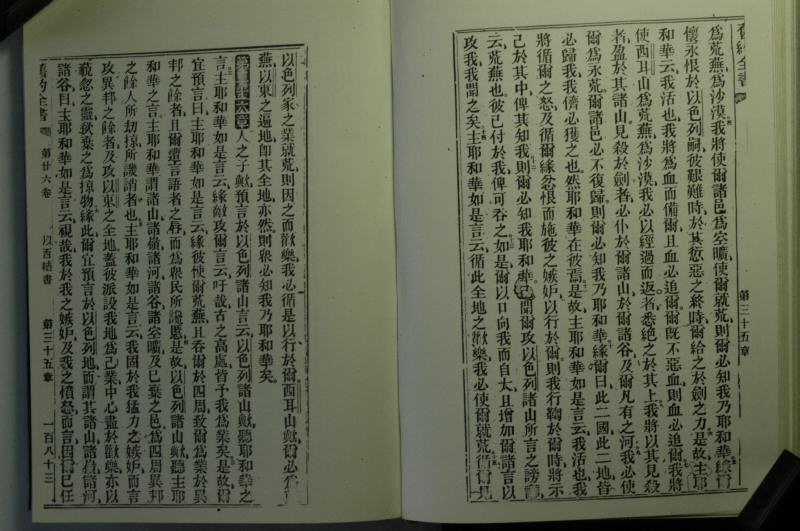 舊約全書
第三十五章
為荒蕪為沙漠我將使爾諸邑為空曠使爾就荒則爾必知我乃耶和華緣爾
懷永恨於以色列嗣彼艱難時於其愆惡之終時爾給之於劍之力是故主耶
和華云我活也我將為血而備爾且血必追爾爾既不惡血則血必追爾我將
使西耳山為荒蕪為沙漠我必以經過而返者悉絕之於其上我將以其見殺
者盈於其諸山見殺於劍者必仆於爾諸山於爾諸谷及爾凡有之河我必使
爾為永荒爾諸邑必不復歸則爾必知我乃耶和華緣爾曰此二國此二地皆
必歸我我儕必獲之也然耶和華在彼焉是故主耶和華如是言云我活也我
將循爾之怒及循爾緣忿恨而施彼之嫉妒以行於爾則我行鞫於爾時將示
己於其中俾其知我則爾必知我耶和華已聞爾攻以色列諸山所言之謗讟
云荒蕪也彼已付於我俾可吞之如是爾以口向我而自大且增加爾諸言以
攻我我聞之矣主耶和華如是言云循此全地之歡樂我必使爾就荒循爾見
以色列家之業就荒則因之而歡樂我必循是以行於爾西耳山歟爾必為
蕪以東之遍地即其全地亦然則眾必知我乃耶和華矣
第三十六章人之子歟預言於以色列諸山言云以色列諸山歟聽耶和華之
言主耶和華如是言云緣敵攻爾言云吁哉古之高處皆予我為業矣是故爾
宜預言曰主耶和華如是言云緣彼使爾荒蕪且吞爾於四周致爾為業於異
邦之餘者且爾遭言語者之辱而為眾民所讒慝是故以色列諸山歟聽主耶
和華之言主耶和華謂諸山諸嶺諸河諸谷諸空曠及已棄之邑為四周異邦
之餘人所刼掠所譏誚者也主耶和華如是言云我固於我猛力之嫉妒而言
攻異邦之餘者及攻以東之全地蓋彼派設我地為己業中心盡於歡樂亦以
藐忽之靈狀棄之為掠物緣此爾宜預言於以色列地而謂其諸山諸嶺諸河
諸谷曰主耶和華如是言云視哉我於我之嫉妒及我之憤怒而言因爾已任
舊約全書
第廿六卷
以西結書
第三十五章
一百八十三